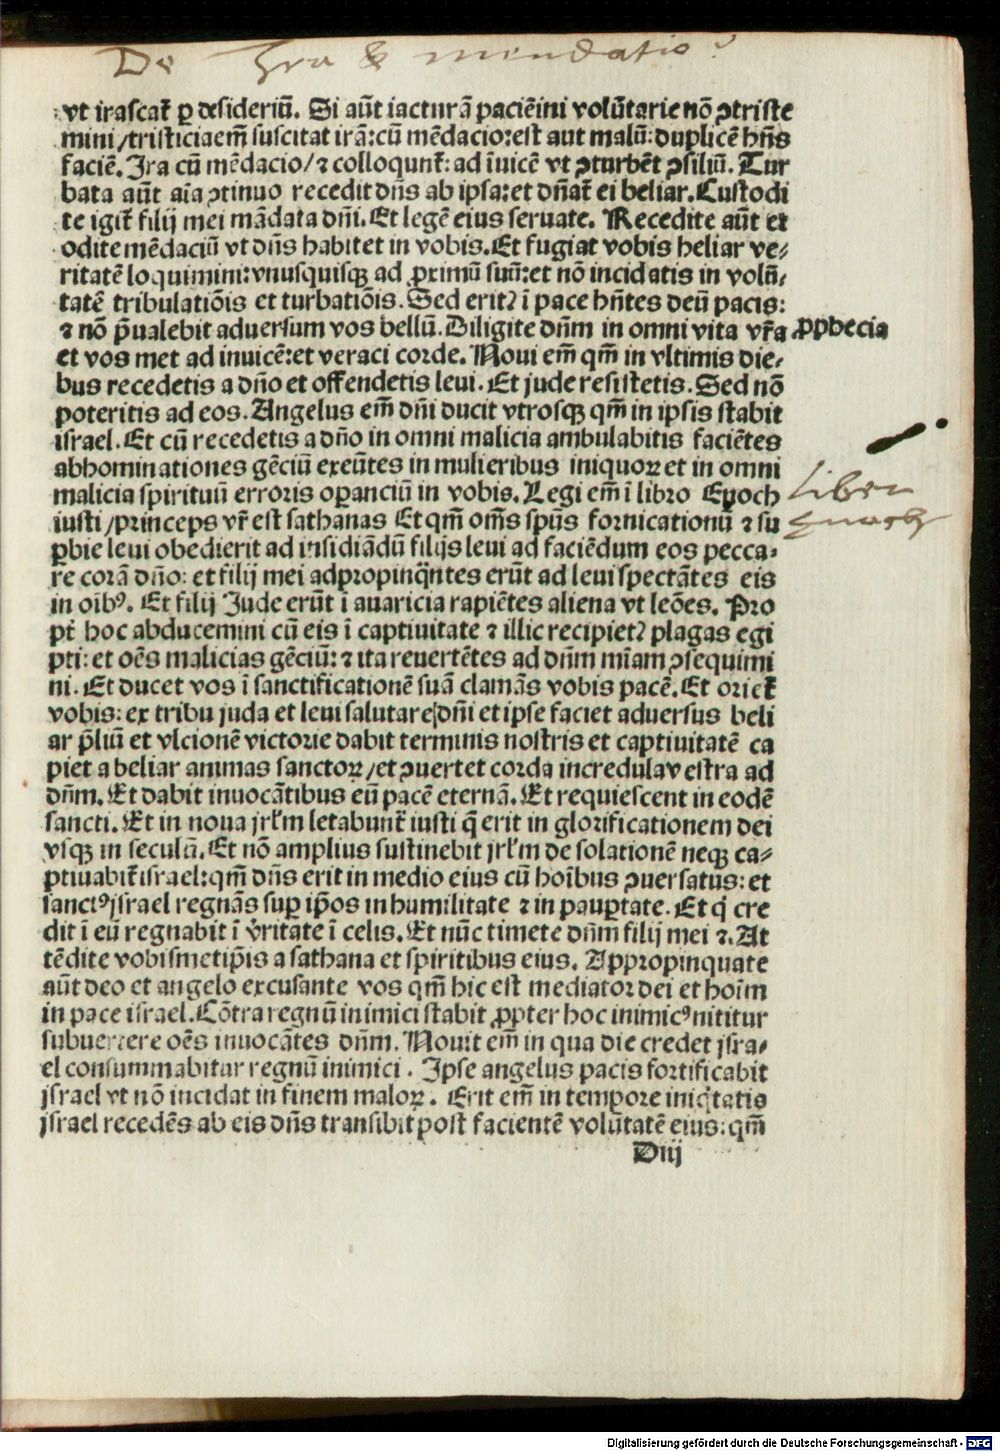 De Ira & mendatio
vt irascat̄ ꝑ desideriū. Si aūt iacturā paciēini volūtarie nō ꝯtriste
mini / tristiciaem̄ suscitat irā: cū mēdacio: est aut malū: duplicē hn̄s
faciē. Ira cū mēdacio / ⁊ colloqunt̄: ad īuicē vt ꝯturbēt ꝯsiliū. Tur
bata aūt aīa ꝯtinuo recedit dn̄s ab ipsa: et dn̄at̄ ei beliar. Custodi
te igit̄ filij mei mādata dn̄i. Et legē eius seruate. Recedite aūt et
odite mēdaciū vt dn̄s habitet in vobis. Et fugiat vobis heliar ve⸗
ritatē loquimini: vnusquisqꝫ ad ꝓximū suū: et nō incidatis in volū⸗
tatē tribulatiōis et turbatiōis. Sed erit? ī pace hn̄tes deū pacis:
⁊ nō p̄ualebit aduersum vos bellū. Diligite dn̄m in omni vita vr̄a
ꝓphecia
et vos met ad inuicē: et veraci corde. Noui em̄ qm̄ in vltimis die⸗
bus recedetis a dn̄o et offendetis leui. Et jude resistetis. Sed nō
poteritis ad eos. Angelus em̄ dn̄i ducit vtrosqꝫ qm̄ in ipsis stabit
israel. Et cū recedetis a dn̄o in omni malicia ambulabitis faciētes
abhominationes gēciū exeūtes in mulieribus iniquoꝝ et in omni
malicia spirituū erroris oꝑanciū in vobis. Legi em̄ ī libro Enoch
Liber
Enoch
iusti / princeps vr̄ est sathanas Et qm̄ om̄s spūs fornicationū ⁊ su
ꝑbie leui obedierit ad insidiādū filijs leui ad faciēdum eos pecca⸗
re corā dn̄o: et filij mei adpropinq̄ntes erūt ad leui spectātes eis
in oibꝰ. Et filij Jude erūt ī auaricia rapiētes aliena vt leōes. Pro
pt̄ hoc abducemini cū eis ī captiuitate ⁊ illic recipiet? plagas egi
pti: et oēs malicias gēciū: ⁊ ita reuertētes ad dn̄m mīam ꝯsequimi
ni. Et ducet vos ī sanctificationē suā clamās vobis pacē. Et oriet̄
vobis: ex tribu juda et leui salutare dn̄i et ipse faciet aduersus beli
ar p̄liū et vlcionē victorie dabit terminis nostris et captiuitatē ca
piet a beliar animas sanctoꝝ / et ꝯuertet corda incredula vestra ad
dn̄m. Et dabit inuocātibus eū pacē eternā. Et requiescent in eodē
sancti. Et in noua jrl̄m letabunt̄ iusti q̄ erit in glorificationem dei
vsqꝫ in seculū. Et nō amplius sustinebit jrl̄m desolationē neqꝫ ca⸗
ptiuabit̄ israel: qm̄ dn̄s erit in medio eius cū hoībus ꝯuersatus: et
sanctꝰ jsrael regnās suꝑ ip̄os in humilitate ⁊ in pauꝑtate. Et q̇ cre
dit ī eū regnabit ī v̄ritate ī celis. Et nūc timete dn̄m filij mei ⁊. At
tēdite vobismetip̄is a sathana et spiritibus eius. Appropinquate
aūt deo et angelo excusante vos qm̄ hic est mediator dei et hoīm
in pace israel. Cōtra regnū inimici stabit ꝓpter hoc inimicꝰ nititur
subuertere oēs inuocātes dn̄m. Nouit em̄ in qua die credet jsra⸗
el consummabitur regnū inimici. Ipse angelus pacis fortificabit
jsrael vt nō incidat in finem maloꝝ. Erit em̄ in tempore iniq̇tatis
jsrael recedēs ab eis dn̄s transibit post facientē volūtatē eius: qm̄
Diij
Digitalisierung gefördert durch die Deutsche Forschungsgemeinschaft - DFG